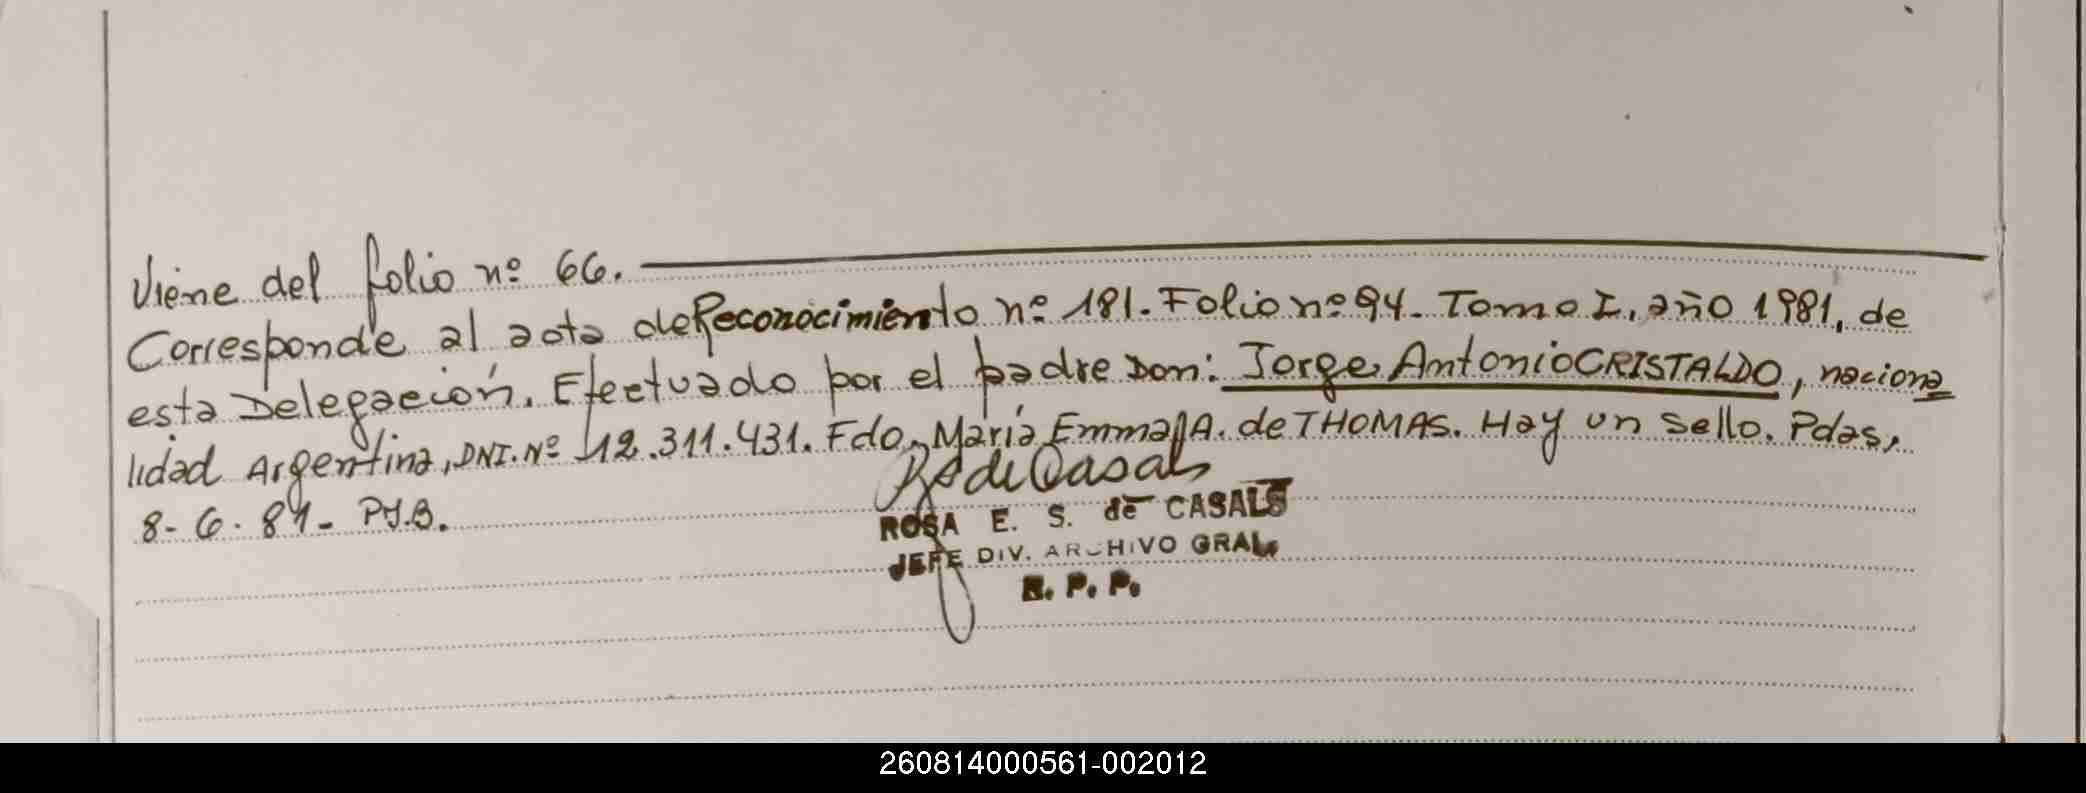 Viene del folio nº 66.
Corresponde al acta de Reconocimiento nº 181. Folio nº 94. Tomo I, año 1981, de
esta Delegación. Efectuado por el padre Don: Jorge Antonio CRISTALDO, naciona
lidad Argentina, DNI. Nº 12.311.431. Fdo. María Emma A. de THOMAS. Hay un sello. Pdas,
8-6-81- PJ.B.
ROSA E. S. de CASALS
JEFE DIV. ARCHIVO GRAL.
R. P. P.
260814000561-002012